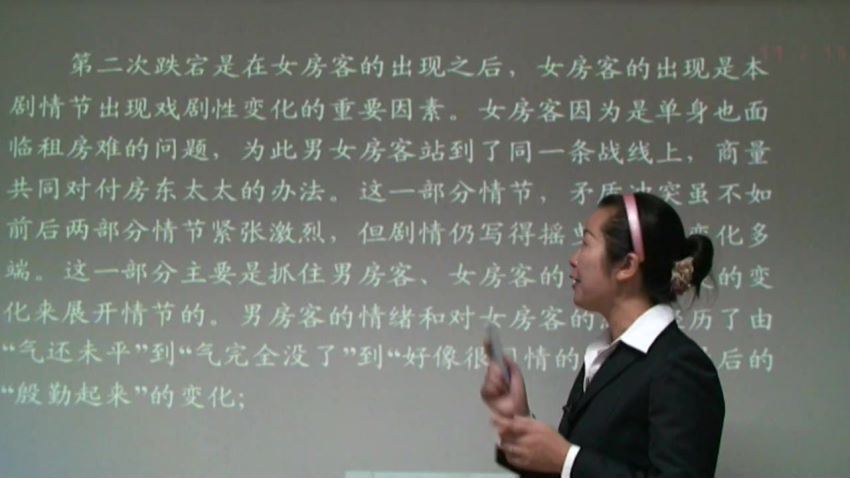 第二次跌宕是在女房客的出现之后，女房客的出现是本
剧情节出现戏剧性变化的重要因素。女房客因为是单身也面
临租房难的问题，为此男女房客站到了同一条战线上，商量
共同对付房东太太的办法。这一部分情节，矛盾冲突虽不如
前后两部分情节紧张激烈，但剧情仍写得摇 变化多
端。这一部分主要是抓住男房客、女房客的 的变
化来展开情节的。男房客的情绪和对女房客的 历了由
“气还未平”到“气完全没了”到“好像很 情的 后的
“殷勤起来”的变化；